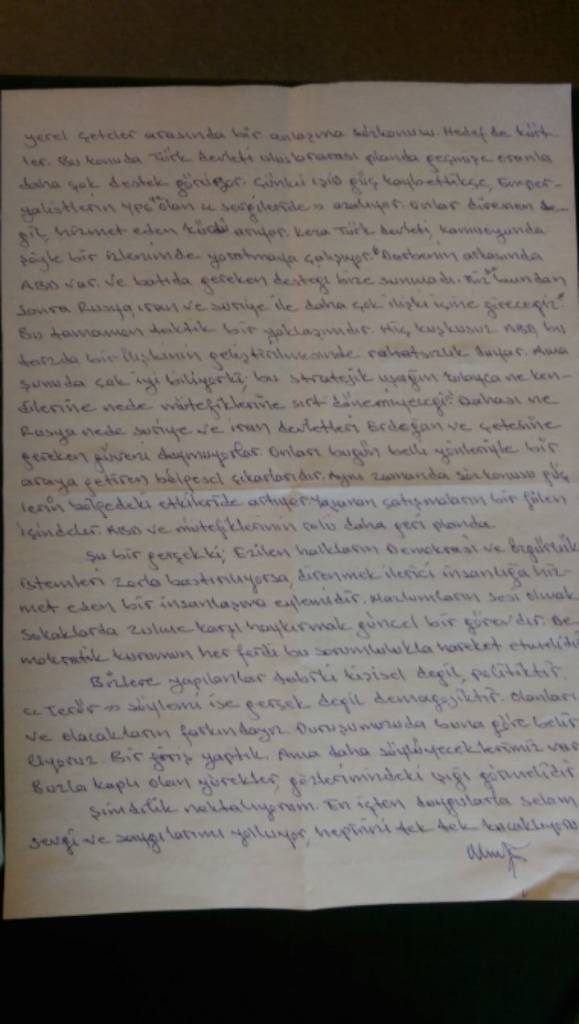 yerel çeteler arasında bir anlaşma sözkonusu. Hedef de kürt-
ler. Bu konuda Türk devleti uluslararası planda geçmişe oranla
daha çok destek görüyor. Çünkü işid güç kaybettikçe, Emper-
yalistlerin YPG'e olan « sevgileride » azalıyor. onlar direnen de-
ğil, hizmet eden kürdü arıyor. Keza Türk devleti, kamuoyunda
şöyle bir izlenimde yaratmaya çalışıyor. "Darbenin arkasında
ABD var. ve batıda gereken desteği bize sunmadı. Biz bundan
sonra Rusya, iran ve suriye ile daha çok ilişki içine gireceğiz".
Bu tamamen taktik bir yaklaşımdır. Hiç kuşkusuz ABD bu
tarzda bir ilişkinin geliştirilmesinde rahatsızlık duyar. Ama
şunuda çok iyi biliyorki; bu stratejik uşağın kolayca ne ken-
dilerine nede mütefiklerine sırt dönemiyeceği. Dahası ne
Rusya nede suriye ve iran devletleri Erdoğan ve çetesine
gereken güveni duymuyorlar. Onları bugün belli yönleriyle bir
araya getiren bölgesel çıkarlarıdır. Aynı zamanda sözkonusu güç
lerin bölgedeki etkileride artıyor. yaşanan çatışmaların bir fiilen
içindeler. ABD ve mütefiklerinin rolü daha geri planda.
Şu bir gerçekki; Ezilen halkların Demokrasi ve Özgürlük
istemleri zorla bastırılıyorsa, direnmek ilerici insanlığa hiz-
met eden bir insanlaşma eylemidir. Mazlumların sesi olmak
Sokaklarda zulme karşı haykırmak güncel bir görevdir. De-
mokratik kurumun her ferdi bu sorumlulukla hareket etmelidir
Bizlere yapılanlar tabiki kişisel değil, politiktir.
« Terör » söylemi ise gerçek değil demagojiktir. Olanları
ve olacakların farkındayız. Duruşumuzuda buna göre belir
liyoruz. Bir giriş yaptık. Ama daha söyliyeceklerimiz var
Buzla kaplı olan yürekler, gözlerimizdeki ışığı görmelidir
Şimdilik noktalıyorum. En içten duygularla selam
sevgi ve saygılarımı yolluyor, hepinizi tek tek kucaklıyorum